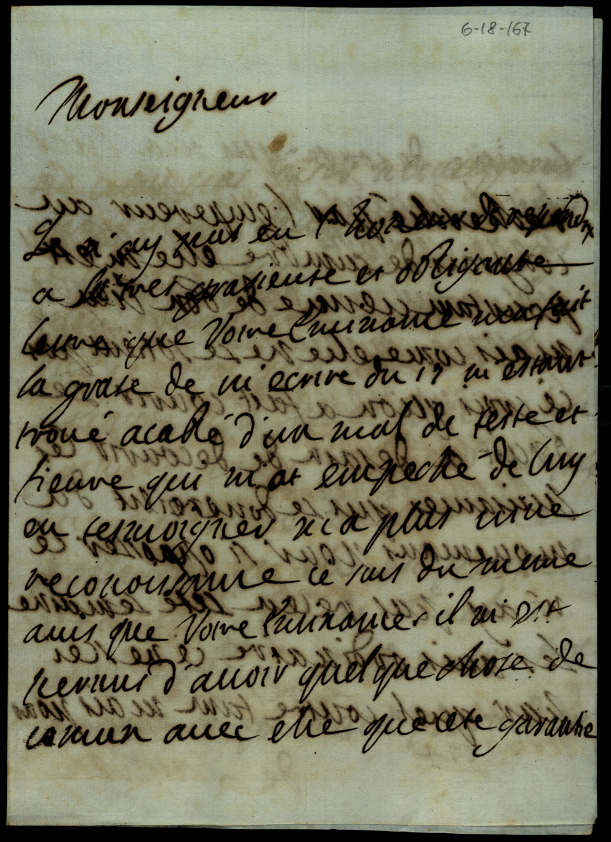 6-18-167
Monseigneur
Je n'ay pas eu l'honneur de repondre
a la tres gratieuse et obligante
lettre que Votre Eminance m'a fait
la grase de m'ecrire du 17 m'estant
troué acablé d'un mal de teste et
fieure qui m'at empeché de luy
en tesmoigner ma plus viue
reconoissanse ie suis du meme
auis que Votre Eminance s'il m'est
permis d'auoir quelque chose de
comun auec elle que cete garantie